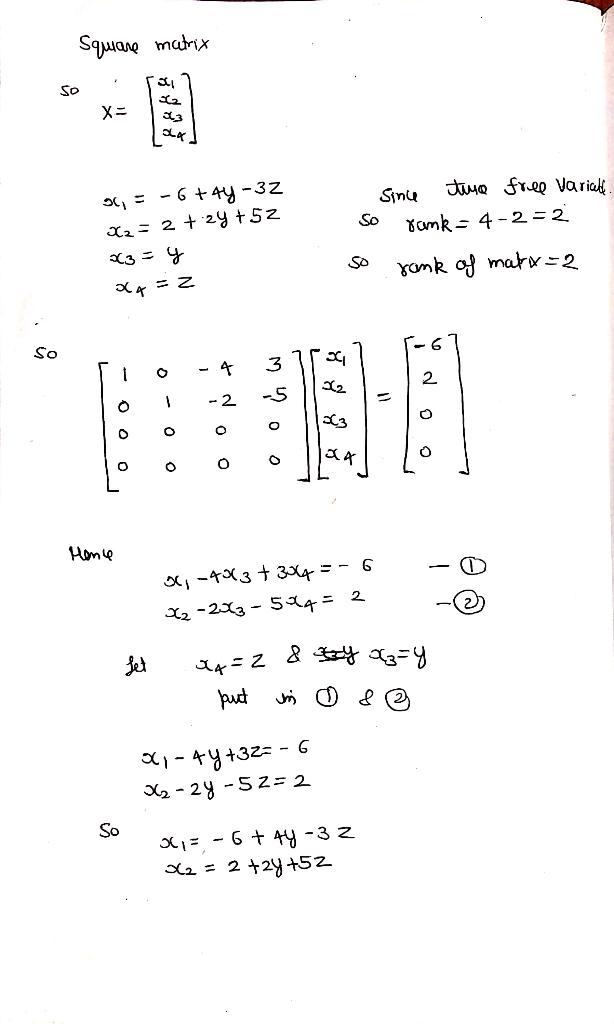 Square matrix
so X = [x₁ x₂ x₃ x₄]
x₁ = -6 + 4y - 3z
x₂ = 2 + 2y + 5z
x₃ = y
x₄ = z
Since two free Variable.
so rank = 4 - 2 = 2
so rank of matrix = 2
so
[1 0 -4 3] [x₁] = [-6]
[0 1 -2 -5] [x₂] [2]
[0 0 0 0] [x₃] [0]
[0 0 0 0] [x₄] [0]
Hence
x₁ - 4x₃ + 3x₄ = -6 — ①
x₂ - 2x₃ - 5x₄ = 2 — ②
let x₄ = z & x₃ = y
put in ① & ②
x₁ - 4y + 3z = -6
x₂ - 2y - 5z = 2
So x₁ = -6 + 4y - 3z
x₂ = 2 + 2y + 5z